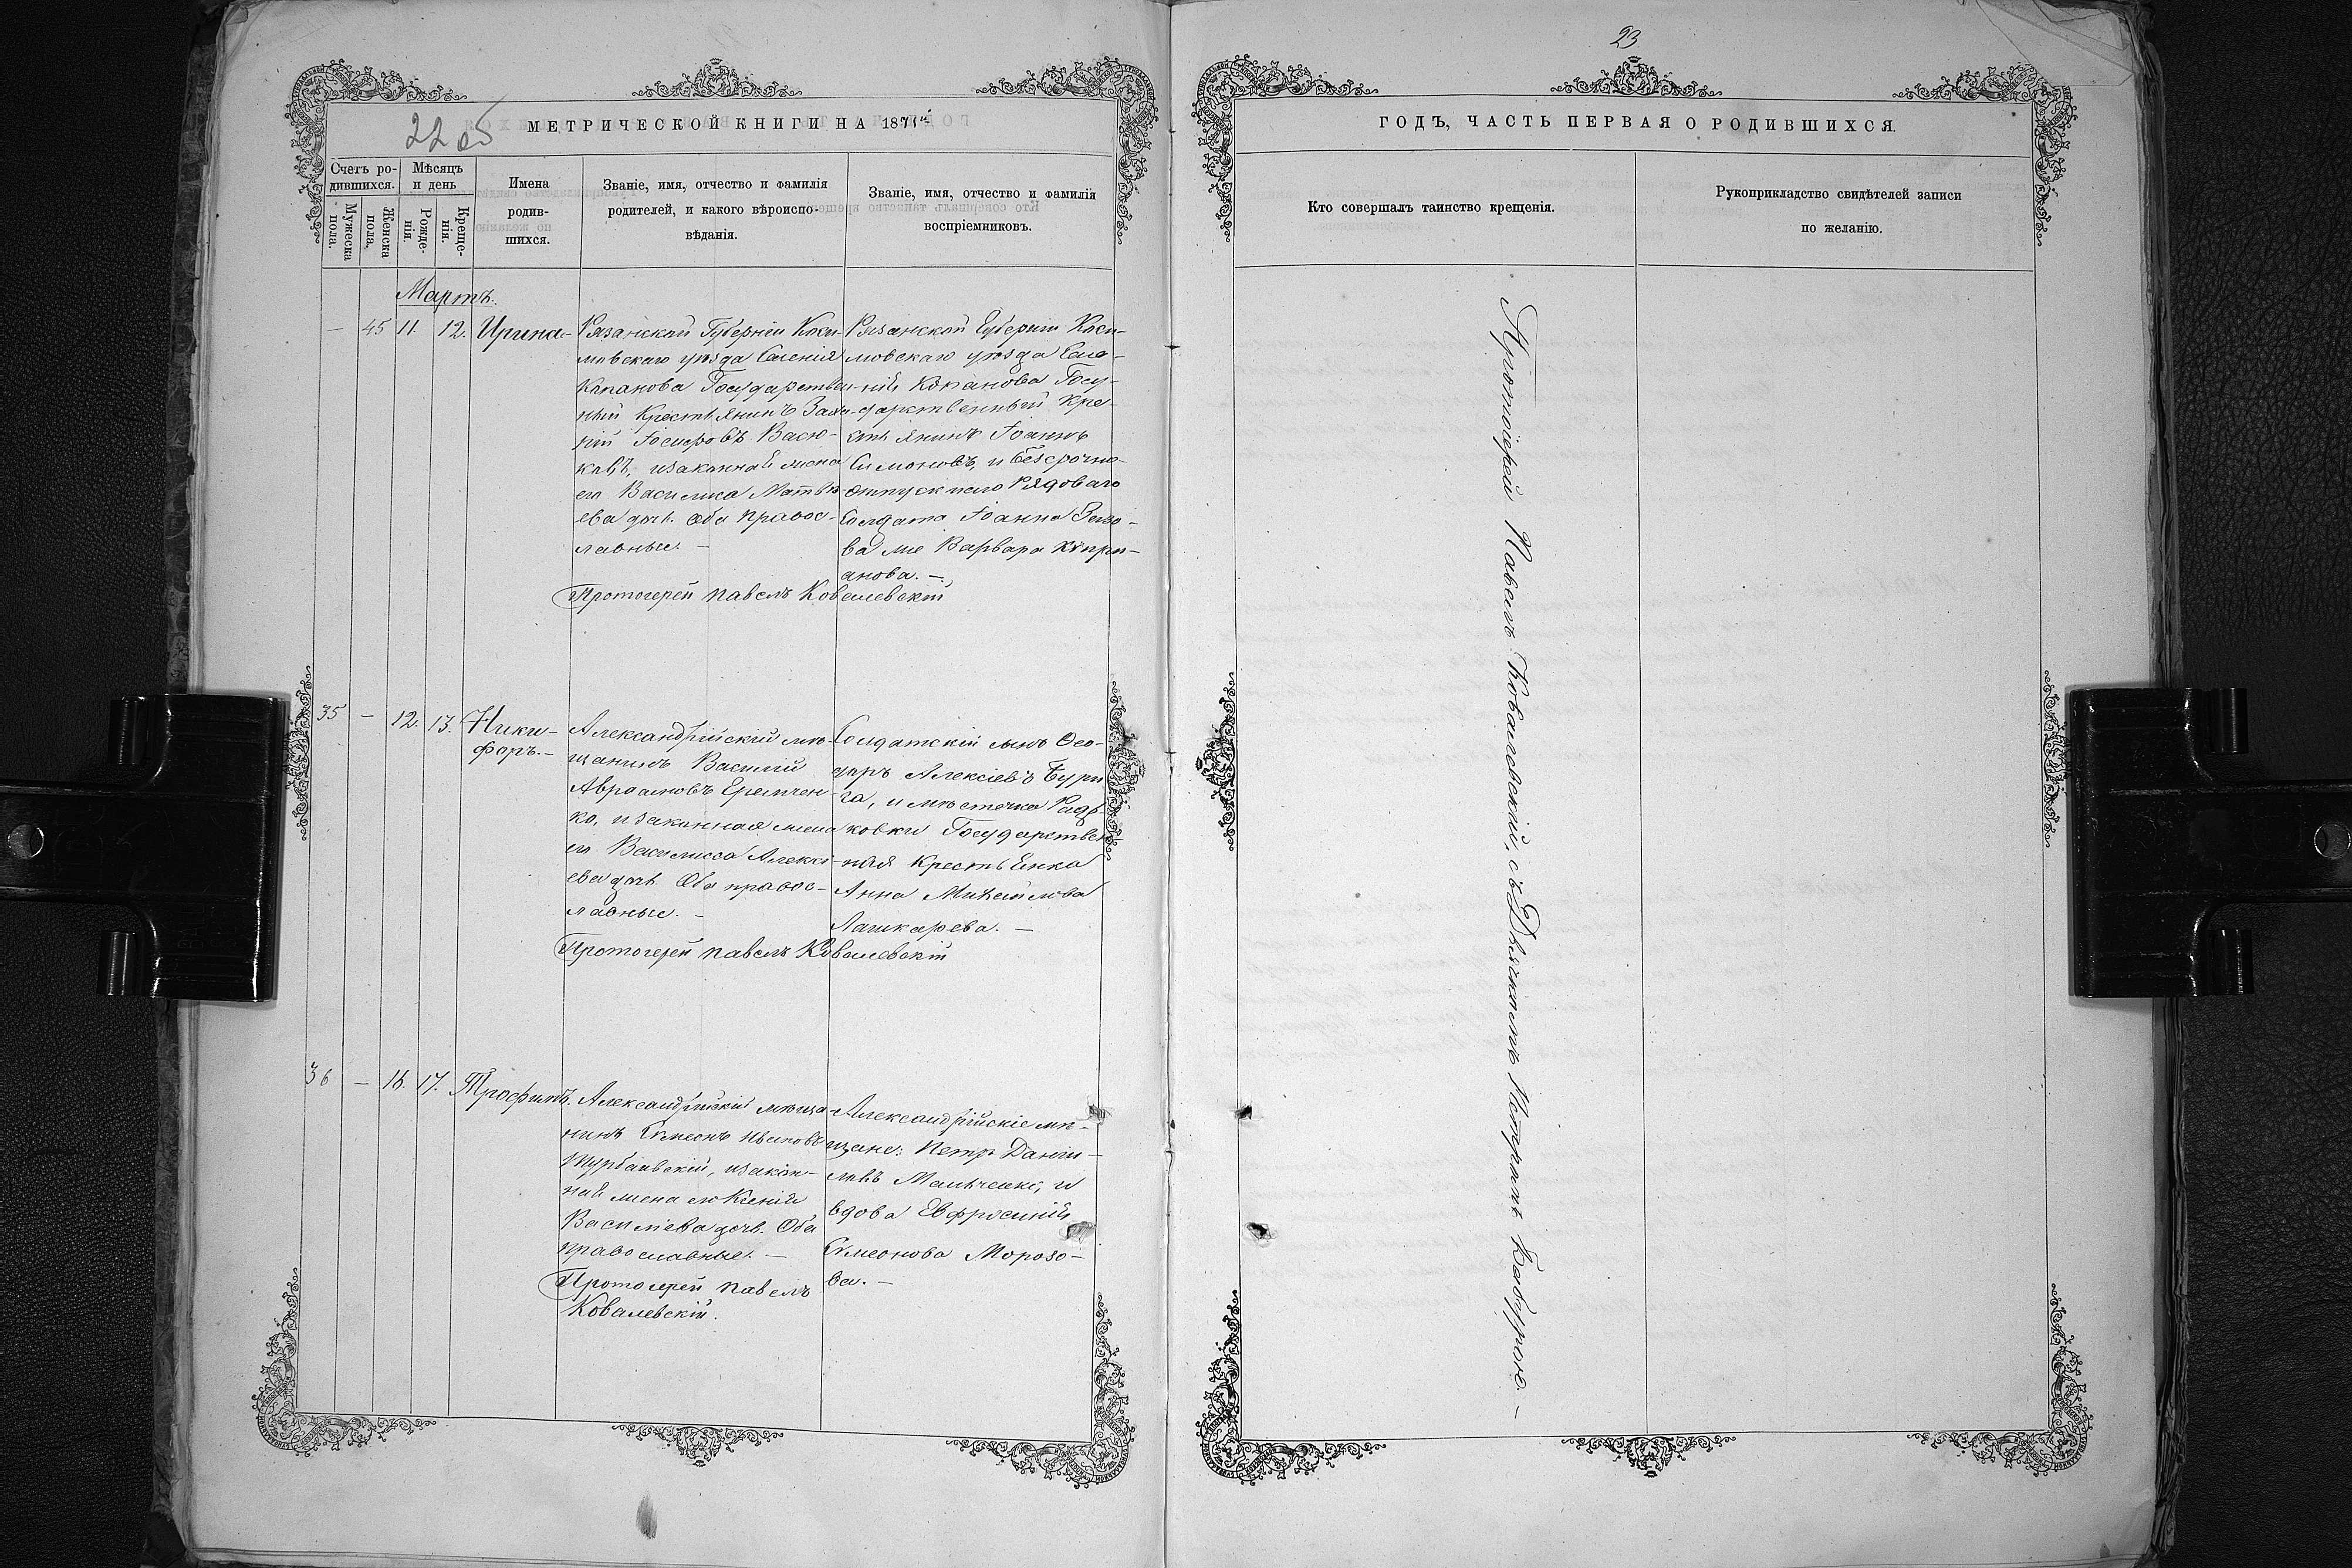 22 об
МЕТРИЧЕСКОЙ КНИГИ НА 1871й
Счетъ ро-
дившихся.
Мѣсяцъ
и день
Мужеска
пола.
Женска
пола.
Рожде-
нія.
Креще-
нія.
Имена
родив-
шихся.
Званіе, имя, отчество и фамилія
родителей, и какого вѣроиспо-
вѣданія.
Званіе, имя, отчество и фамилія
воспріемниковъ.
Мартъ.
— 45 11. 12. Ирина
Рязанской Губерніи Каси-
мовскаго уѣзда Селенія
Копанова Государствен-
ный Крестьянинъ
Іосифовъ Васю-
ковъ, изаконная жена
его Василиса Матвѣ-
ева доч. Оба правос-
лавные. —
Протоіерей Павелъ Ковалевскій
Рязанской Губерніи Каси-
мовскаго уѣзда Селе-
нія Копанова Госу-
дарственный Кре-
стьянинъ Іоаннъ
Симоновъ, и безсрочно-
отпускнаго Рядоваго
Солдата Іоанна
жена Варвара Кѵпри-
анова. —
35 — 12. 13. Ники-
форъ. —
Александрійскій мѣ-
щанинъ Василій
Авраамовъ Еремчен-
ко, изаконная жена
его Василисса Алексі-
ева доч. Оба правос-
лавные. —
Протоіерей Павелъ Ковалевскій
Солдатскій сынъ Ѳео-
доръ Алексіевъ
и мѣстечка
Государствен-
ная Крестьянка
Анна Михайлова
Лашкарева. —
36 — 16. 17. Трофимъ.
Александрійскій мѣща-
нинъ Сѵмеонъ Ивановъ
Турбаевскій, изакон-
ная жена его Ксенія
Василіева доч. Оба
православные. —
Протоіерей Павелъ
Ковалевскій.
Александрійскіе мѣ-
щане: Петръ Даніи-
ловъ Мальченко, и
вдова Евфросинія
Сѵмеонова Морозо-
ва. —
23
ГОДЪ, ЧАСТЬ ПЕРВАЯ О РОДИВШИХСЯ.
Кто совершалъ таинство крещенія.
Рукоприкладство свидѣтелей записи
по желанію.
Протоіерей Павелъ Ковалевскій, съ Дьячкомъ Петромъ Бабурою —